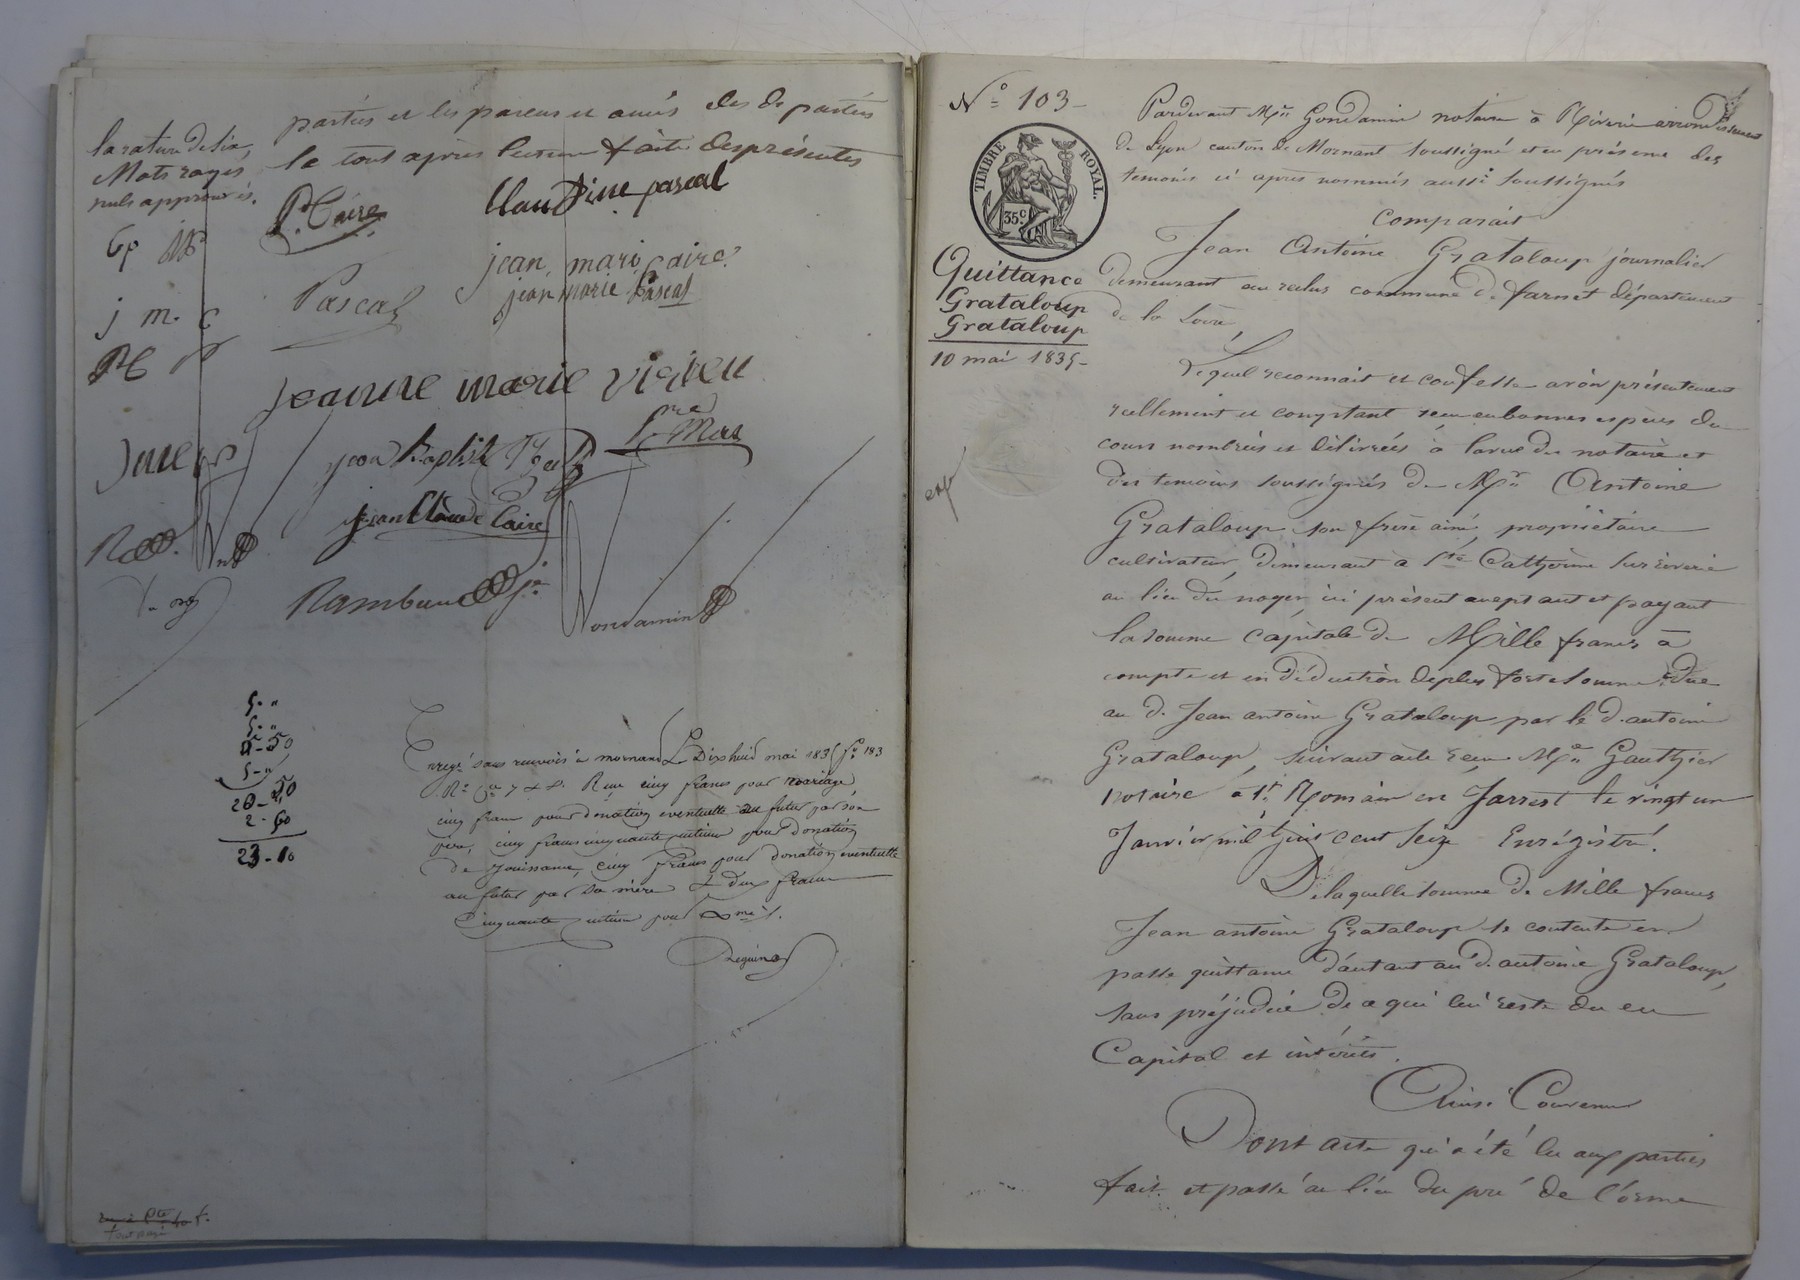 parties et les parens et amis des dx parties
le tout après lecture faite desprésentes
la rature de six
Mots rayés
nuls approuvés.
P. Caire
Claudine pascal
Cp
jean mari Caire
Pascal
jean marie Pascal
j m. c
PC P
jeanne marie vigieu
jme
jean Baptiste
jean Claude Caire
Gondamin
5. "
5. "
5-50
5-"
20-50
2-60
23-10
Enregé sans renvois à mornand Le Dixhuit mai 1835 fo 183
Ro Cse 7 & 8. Reçu cinq francs pour mariage
cinq francs pour donation eventuelle au futur par son
père, cinq francs cinquante centimes pour donation
de jouissance, cinq francs pour donation eventuelle
au futur par sa mère & deux francs
Cinquante centimes pour
N° 103-
TIMBRE ROYAL.
35c
Quittance
Grataloup
Grataloup
10 mai 1835-
exp
Pardevant Me Gondamin notaire à Riverie arrondissement
de Lyon canton de Mornant soussigné et en présence des
temoins ci après nommés aussi soussignés
Comparait
Jean Antoine Grataloup journalier
demeurant au reclus commune de farnet département
de la Loire,
Lequel reconnait et confesse avoir présentement
reellement et comptant reçu en bonnes espèces du
cours nombrées et délivrées à la vue du notaire et
des temoins soussignés de Mr Antoine
Grataloup son frère ainé, propriétaire
cultivateur, demeurant à Ste Catherine sur riverie
au lieu du noyer, ici présent acceptant et payant
la somme capitale de Mille francs à
compte et en déduction de plus forte somme due
au d. Jean antoine Grataloup par le d. antoine
Grataloup, suivant acte reçu Me Gauthier
notaire à St. Romain en Jarrest le vingt un
Janvier mil huit cent seize Enrégistré.
De laquelle somme de Mille francs
Jean antoine Grataloup se contente en
passe quittance d'autant au d. antoine Grataloup,
sans préjudice de ce qui lui reste du en
Capital et intérêts.
Ainsi Convenu
Dont acte qui a été lu aux parties
fait et passé au lieu du pré de l'orme